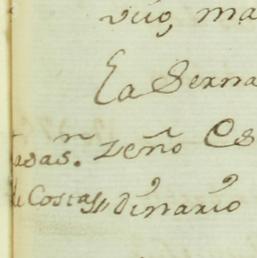 vuo, ma
La Serna
sas.n zeño Es
de Costas,, dinario